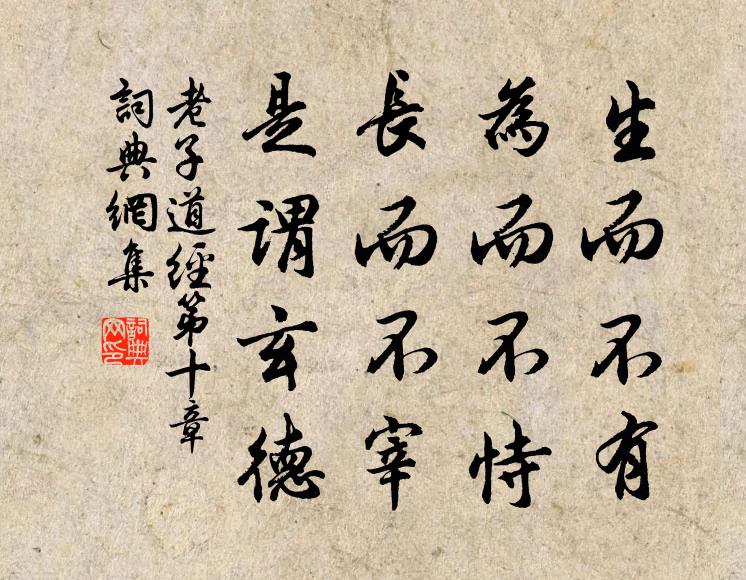 生而不有
為而不恃
長而不宰
是謂玄德
老子道經第十章
詞典網集
詞典
网印